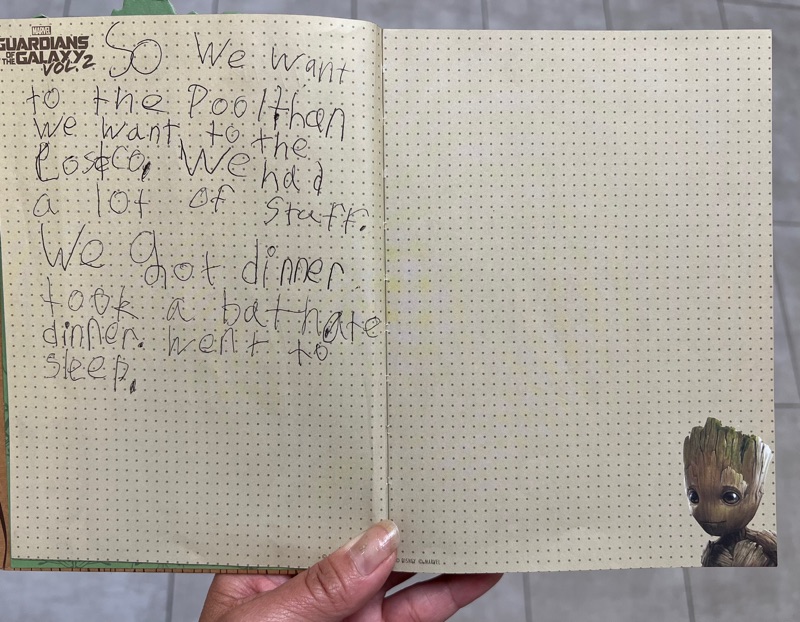 MARVEL
GUARDIANS
OF THE GALAXY
VOL. 2
So We want
to the Pool than
we want to the
Costco. We had
a lot of Stuff.
We got dinner
took a bath ate
dinner. went to
sleep.